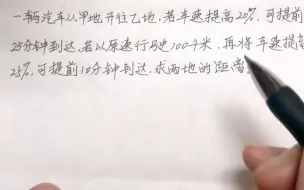 一辆汽车从甲地开往乙地,若车速提高20%,可提前
25分钟到达,若以原速行驶100千米,再将车速提高
25%,可提前10分钟到达,求两地的距离。